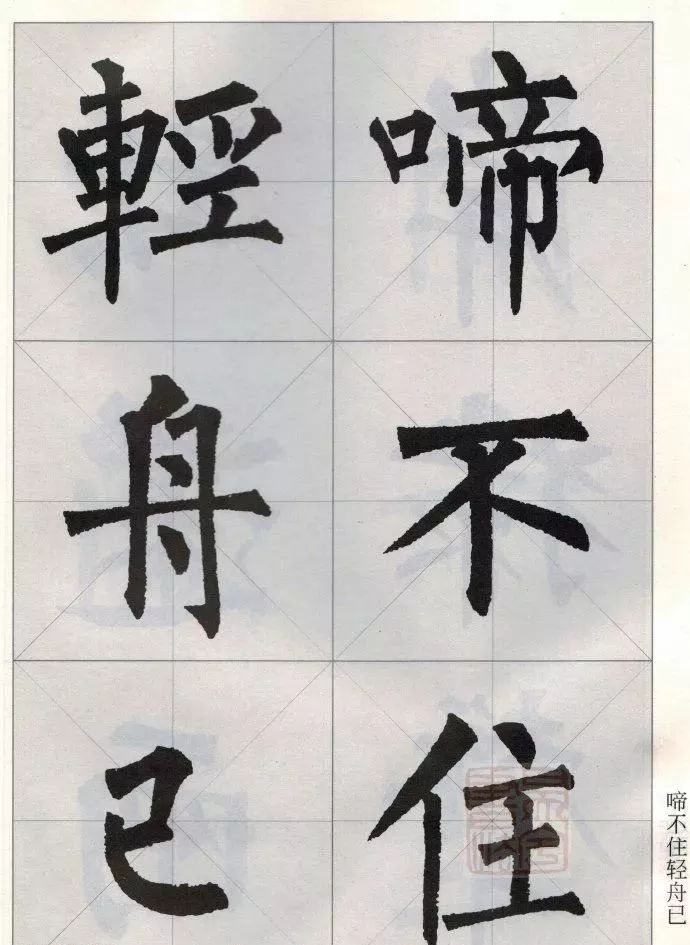 啼不住
輕舟已
啼不住轻舟已